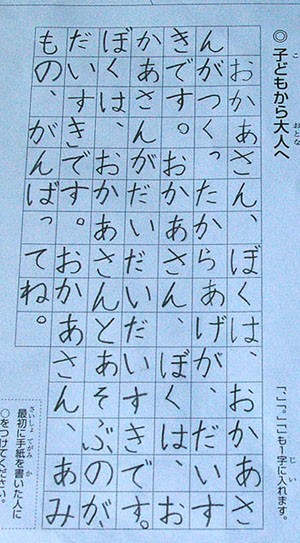 ◎子どもから大人へ
「、」「。」「」も一字に入れます。
おかあさん、ぼくは、おかあさ
んがつくったからあげが、だいす
きです。おかあさん ぼくは、お
かあさんがだいだいだいすきです。
ぼくは、おかあさんとあそぶのが、
だいすきです。おかあさん、あみ
もの、がんばってね。
最初に手紙を書いた人に
○をつけてください。